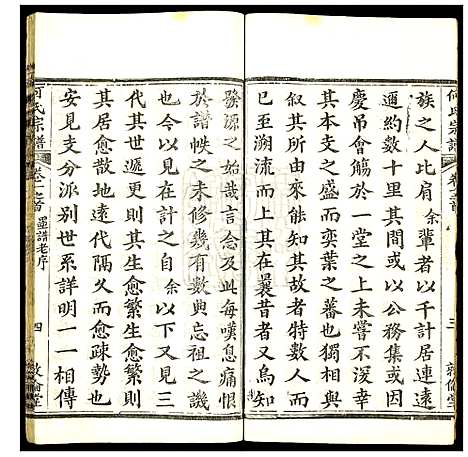 何氏宗譜
卷之首
三
敦倫堂
族之人比肩余輩者以千計居連
邇約數里其間或以公務集或以
慶吊會觴於一堂之上未嘗不深幸
其本支之盛而奕葉之蕃也獨相與
由其所以能繁者而特疇數人而
已余為之溯而上之其在曩昔又烏知
發源之始哉言念及此每嘆息痛恨
於譜帙之未修幾有數典忘祖之譏
也今以見在計之自余以下又見三
代其世遞更其生愈繁生愈繁而
其居愈散地以代隔久而愈疎勢也
安見支分派別世系詳明一一相傳
何氏宗譜
卷之首
墨譜老序
四
敦倫堂